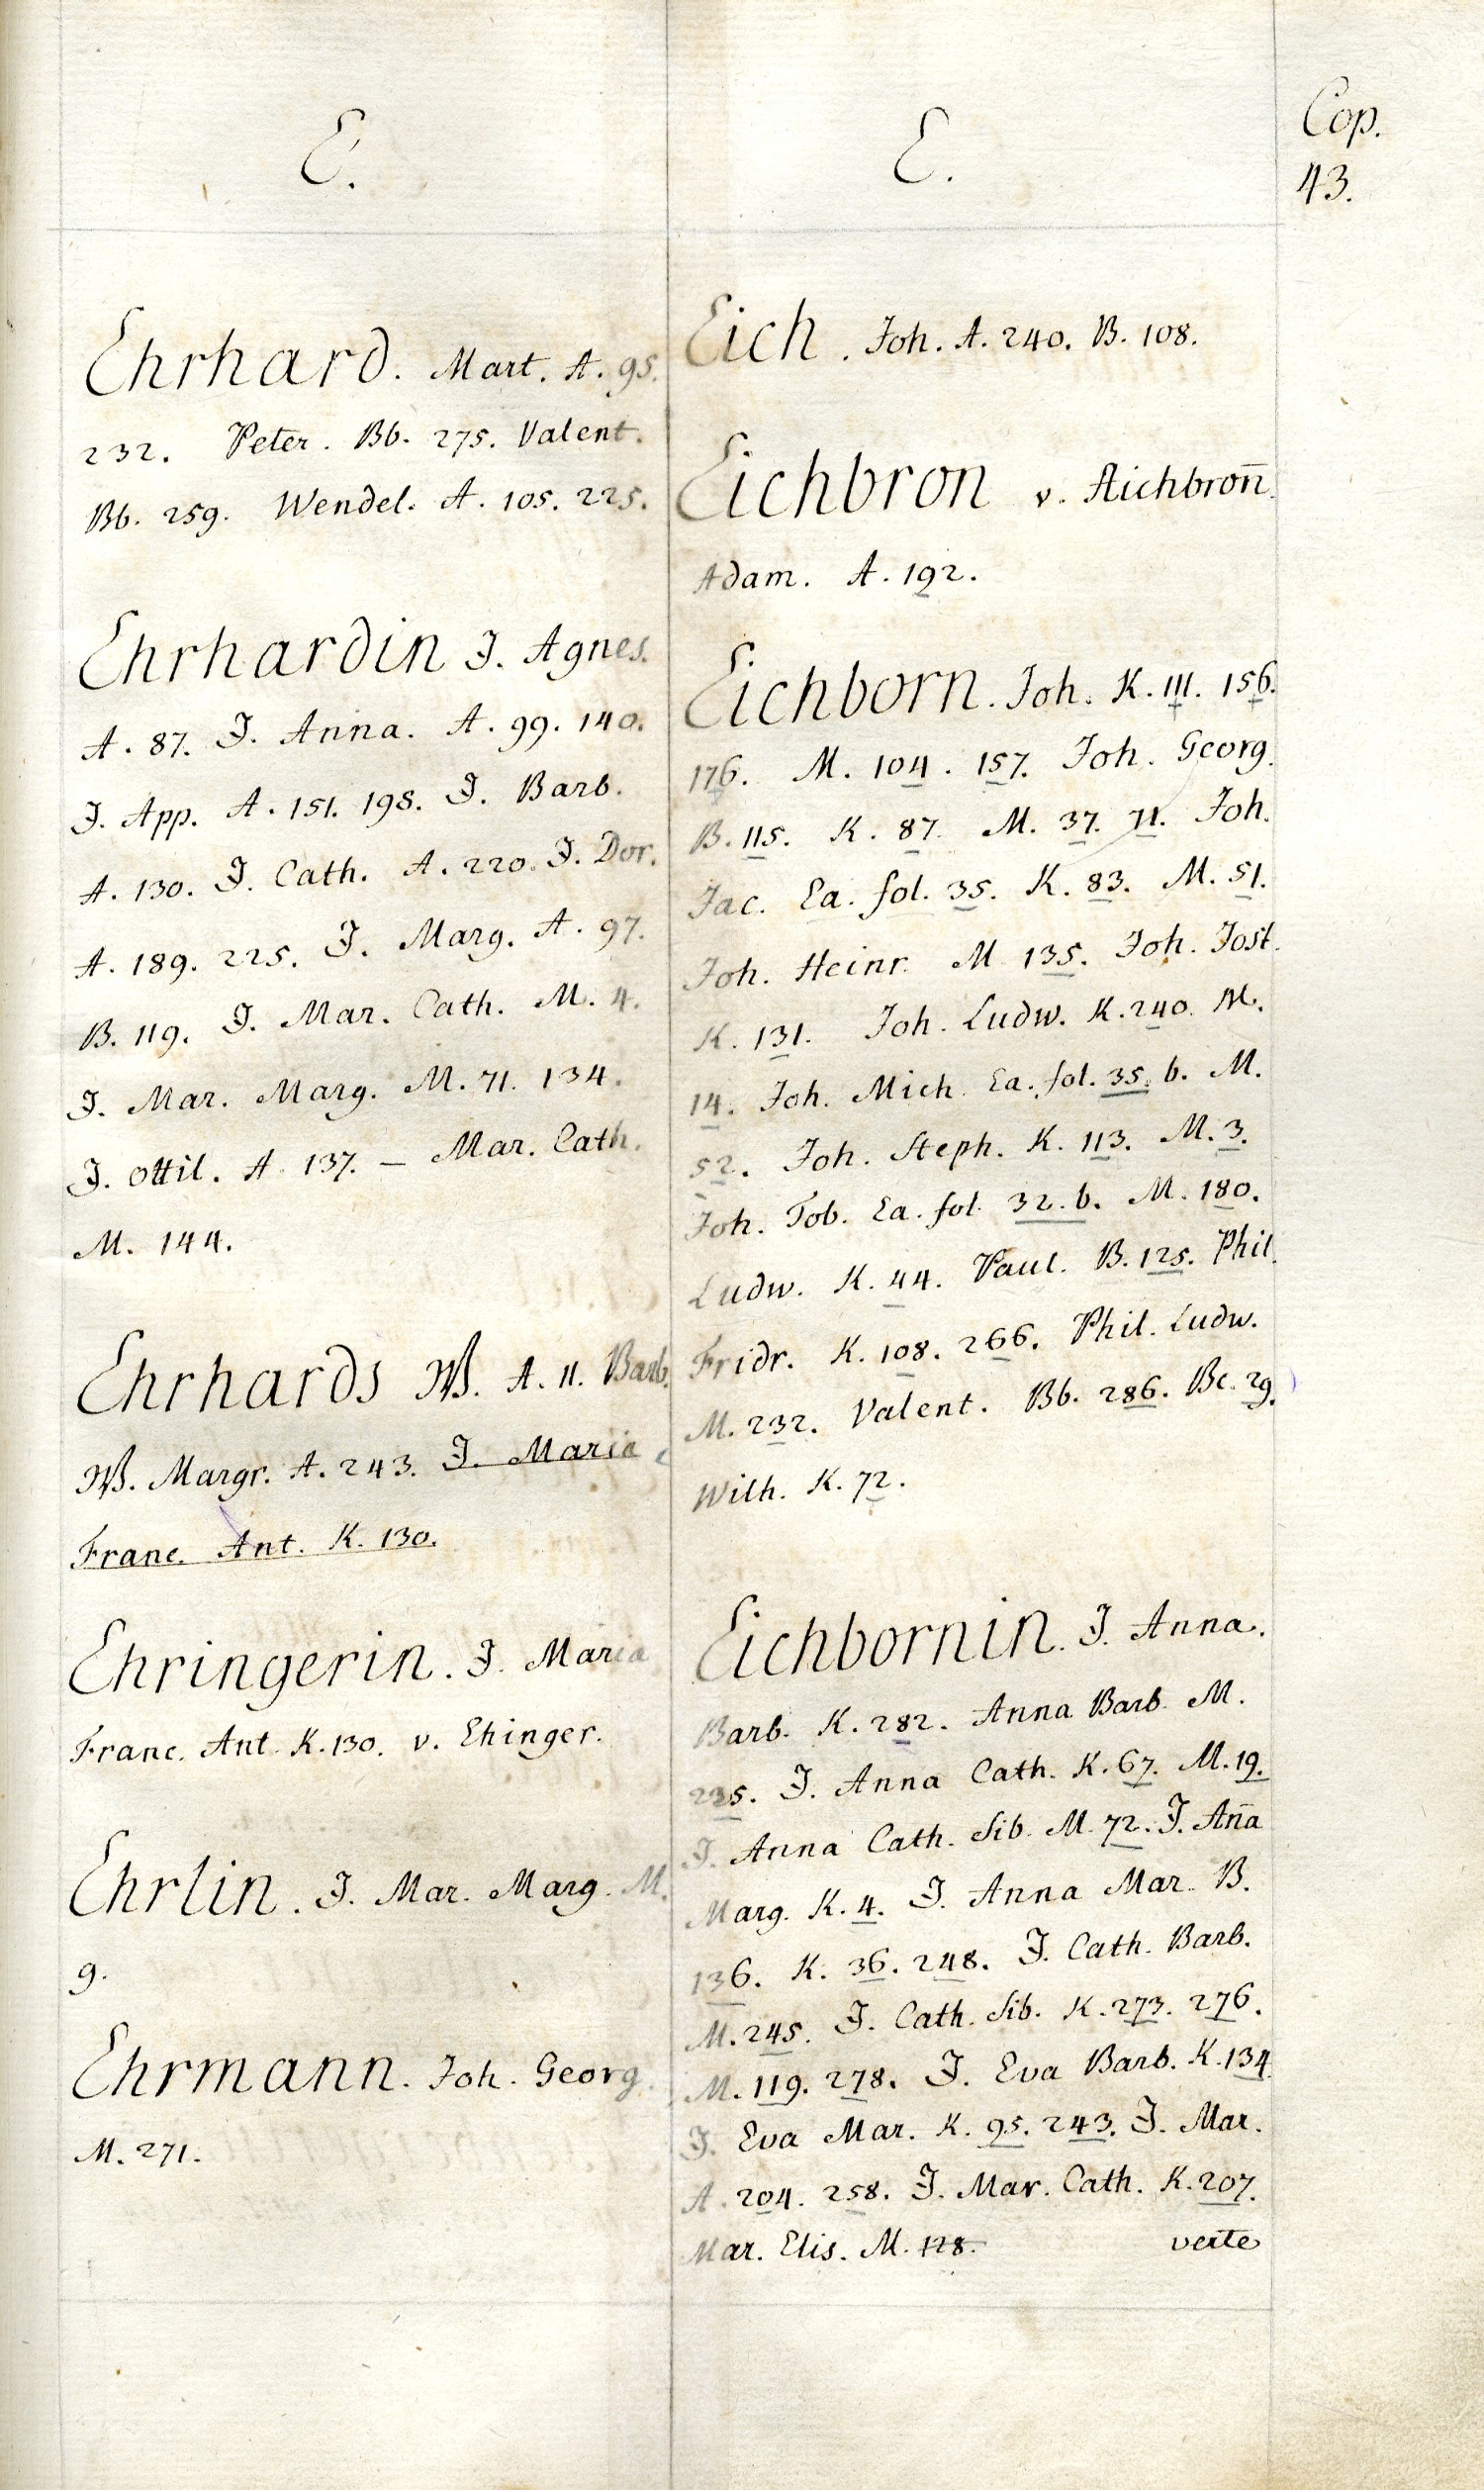 Cop.
43.
E.
Ehrhard. Mart. A. 95.
232. Peter. Bb. 275. Valent.
Bb. 259. Wendel. A. 105. 225.
Ehrhardin J. Agnes.
A. 87. J. Anna. A. 99. 140.
J. App. A. 151. 198. J. Barb.
A. 130. J. Cath. A. 220. J. Dor.
A. 189. 225. J. Marg. A. 97.
B. 119. J. Mar. Cath. M. 4.
J. Mar. Marg. M. 71. 134.
J. Ottil. A. 137. – Mar. Cath.
M. 144.
Ehrhards W. A. 11. Barb.
W. Margr. A. 243. J. Maria
Franc. Ant. K. 130.
Ehringerin. J. Maria
Franc. Ant. K. 130. v. Ehinger.
Ehrlin. J. Mar. Marg. M.
9.
Ehrmann. Joh. Georg.
M. 271.
E.
Eich. Joh. A. 240. B. 108.
Eichbron v. Aichbron̄.
Adam. A. 192.
Eichborn. Joh. K. 111. 156.
176. M. 104. 157. Joh. Georg.
B. 115. K. 87. M. 37. 71. Joh.
Jac. Ea. fol. 35. K. 83. M. 51.
Joh. Heinr. M. 135. Joh. Jost.
K. 131. Joh. Ludw. K. 240. M.
14. Joh. Mich. Ea. fol. 35. b. M.
52. Joh. Steph. K. 113. M. 3.
Joh. Tob. Ea. fol. 32. b. M. 180.
Ludw. K. 44. Paul. B. 125. Phil.
Fridr. K. 108. 266. Phil. Ludw.
M. 232. Valent. Bb. 286. Bc. 29.
Wilh. K. 72.
Eichbornin. J. Anna.
Barb. K. 282. Anna Barb. M.
225. J. Anna Cath. K. 67. M. 19.
J. Anna Cath. Sib. M. 72. J. An̄a
Marg. K. 4. J. Anna Mar. B.
136. K. 36. 248. J. Cath. Barb.
M. 245. J. Cath. Sib. K. 273. 276.
M. 119. 278. J. Eva Barb. K. 134.
J. Eva Mar. K. 95. 243. J. Mar.
A. 204. 258. J. Mar. Cath. K. 207.
Mar. Elis. M. 128. verte